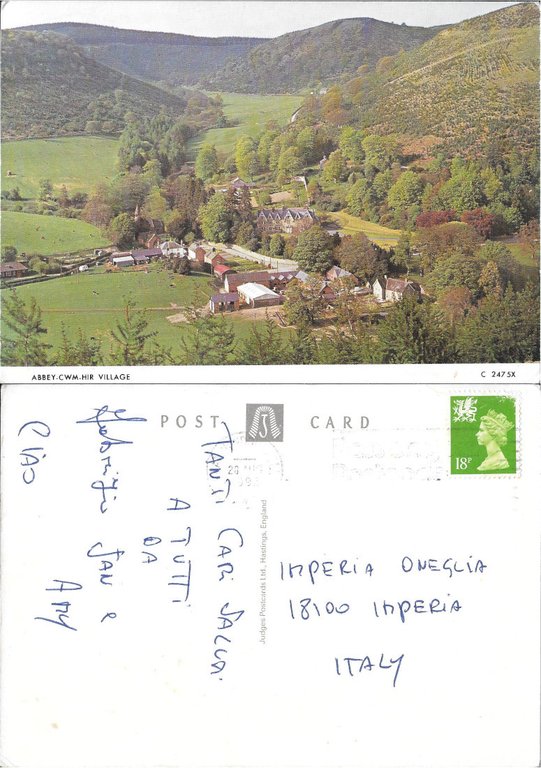 ABBEY-CWM-HIR VILLAGE
C 2475X
POST CARD
18P
Judges Postcards Ltd., Hastings, England
TANTI CARI SALUTI
A TUTTI
DA
JAN &
AMY
CIAO
IMPERIA ONEGLIA
18100 IMPERIA
ITALY